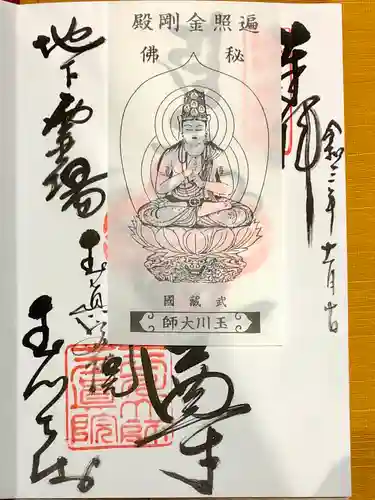 奉拝
令和三年十一月十日
遍照金剛殿
秘佛
武蔵國
玉川大師
地下霊場
玉真院
玉川大師